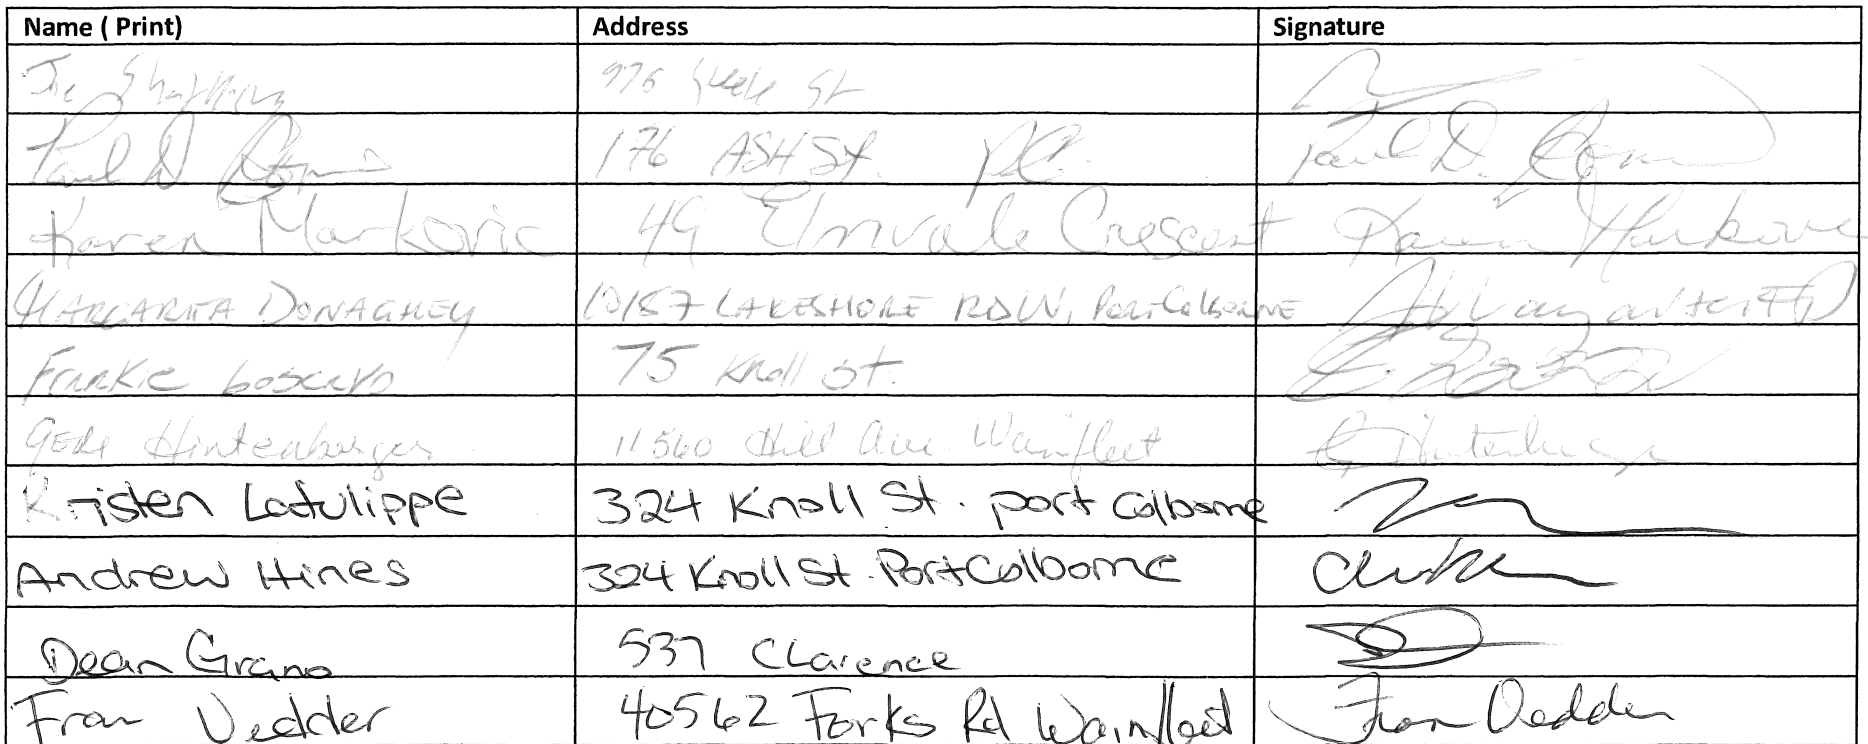 Name ( Print) Address Signature
Joe 976 Steele St
Paul D 176 ASH St. P.C. Paul D.
Karen Markovic 49 Elmvale Crescent Karen Markovic
MARGARITA DONAGHEY 10157 LAKESHORE RD W, Port Colborne
Frankie 75 Knoll St.
GERI Hintenberger 11560 Hill Ave Wainfleet G Hintenberger
Kristen Latulippe 324 Knoll St. port colborne
Andrew Hines 324 Knoll St. Port Colborne
Dean Grano 537 Clarence
Fran Vedder 40562 Forks Rd Wainfleet Fran Vedder